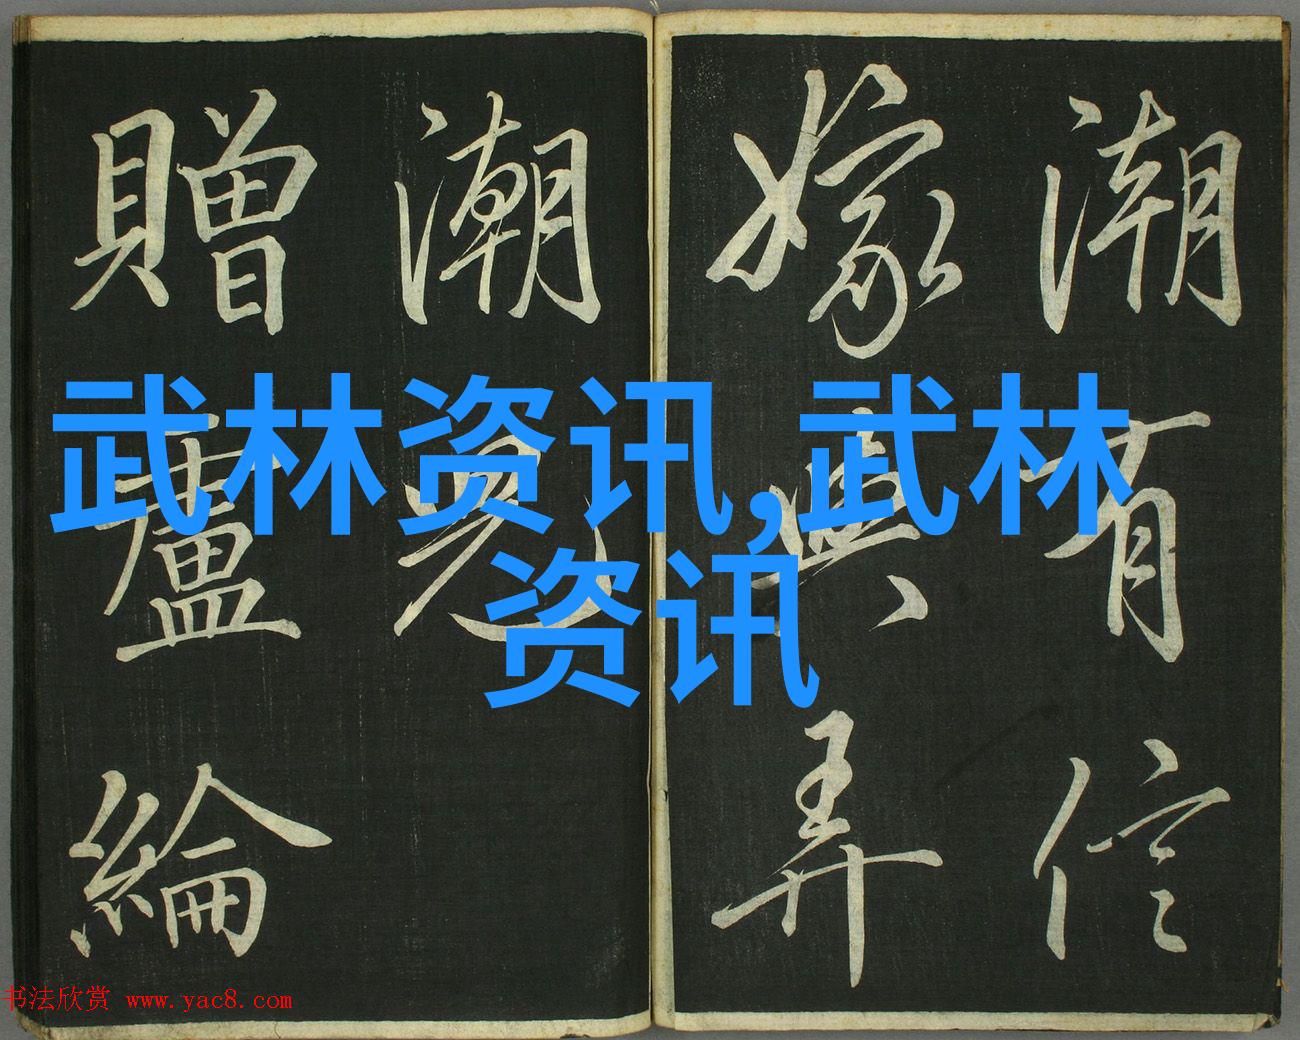 潮有信
嫁與弄
潮兒
贈盧綸
武林资讯,武林
资讯
书法欣赏 www.yac8.com